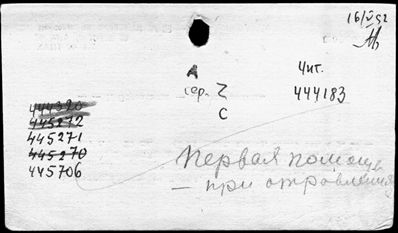 16/V 52
А
сер. Z
С
Чит.
444183
444320
445272
445271
445270
445706
Первая помощь
— при отравлениях